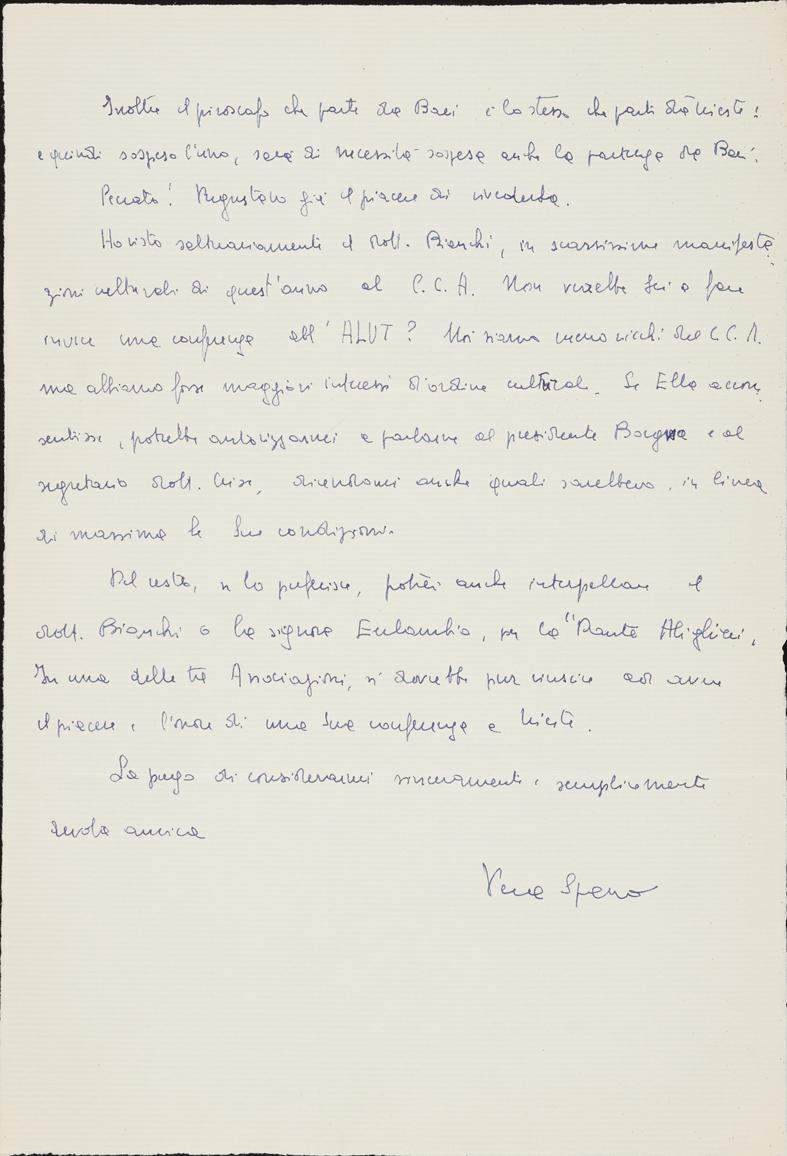 Inoltre il piroscafo che parte da Bari è lo stesso che parte da Trieste!
e quindi sospeso l'uno, sarà di necessità sospesa anche la partenza da Bari.
Peccato! Pregustavo già il piacere di rivederla.
Ho visto saltuariamente il dott. Bianchi, in scarsissime manifesta
zioni culturali di quest'anno al C.C.A. Non verrebbe Lei a fare
invece una conferenza all'ALUT? Noi siamo meno ricchi del C.C.A.
ma abbiamo forse maggiori interessi d'ordine culturale. Se Ella accon
sentisse, potrebbe autorizzarmi a parlarne al presidente e al
segretario dott. dicendomi anche quali sarebbero, in linea
di massima le Sue condizioni.
Del resto, se lo preferisce, potrei anche interpellare il
dott. Bianchi o la signora Eulambio, per la "Dante Alighieri,
In una delle tre Associazioni, si dovrebbe pur riuscire ad avere
il piacere e l'onore di una Sua conferenza a Trieste.
La prego di considerarmi sinceramente e semplicemente
devota amica
Spano